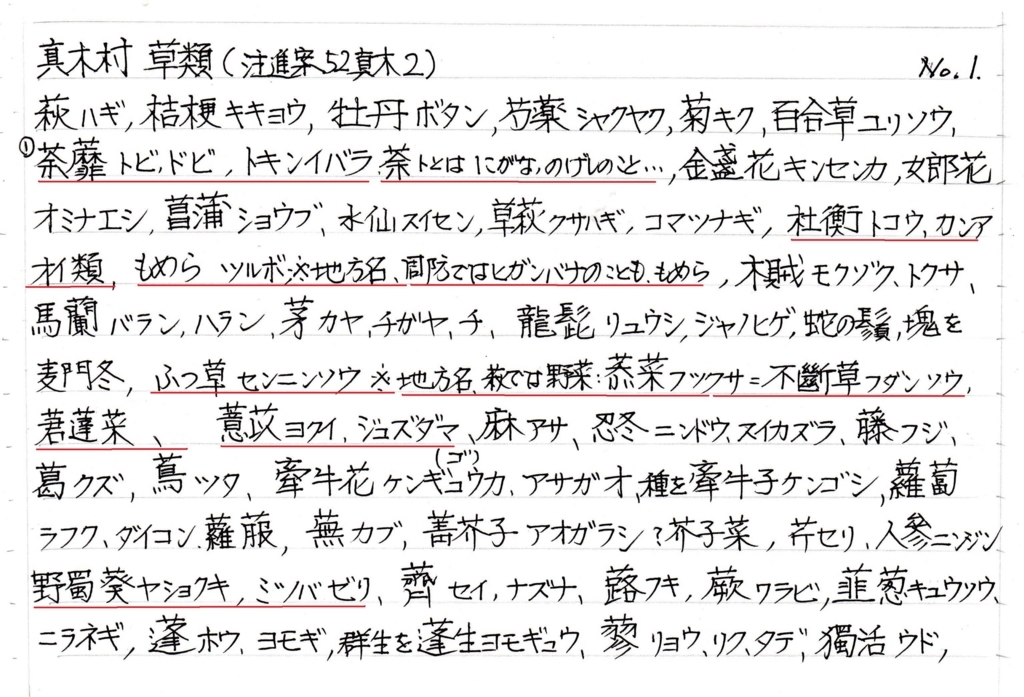 真木村 草類(注進案52真木2) No.1.
萩ハギ, 桔梗キキョウ, 牡丹ボタン, 芍薬シャクヤク, 菊キク, 百合草ユリソウ,
①荼蘼トビ,ドビ, トキンイバラ.荼トとは にがな,のげしのこと…, 金盞花キンセンカ, 女郎花
オミナエシ, 菖蒲ショウブ、水仙スイセン, 草萩クサハギ, コマツナギ, 杜衡トコウ、カンア
オイ類, もめら ツルボ,※地方名、周防ではヒガンバナのことも、もめら, 木賊モクゾク、トクサ、
馬蘭バラン, ハラン、茅カヤ,チガヤ,チ、龍髭リュウシ,ジャノヒゲ,蛇の鬚,塊を
麦門冬, ふつ草センニンソウ ※地方名、萩では野菜:菾菜フツクサ=不斷草フダンソウ,
莙蓬菜、 薏苡ヨクイ、ジュズダマ、麻アサ、忍冬ニンドウ,スイカズラ、藤フジ、
葛クズ, 蔦ツタ、牽牛花ケンギュウカ(ゴ)、アサガオ,種を牽牛子ケンゴシ, 蘿蔔
ラフク、ダイコン.蘿菔, 蕪カブ, 菁芥子アオガラシ?芥子菜, 芹セリ、人參ニンジン
野蜀葵ヤショクキ, ミツバゼリ、薺セイ,ナズナ、蕗フキ、蕨ワラビ, 韮葱キュウソウ、
ニラネギ, 蓬ホウ、ヨモギ,群生を蓬生ヨモギュウ、蓼リョウ、リク、タデ、獨活ウド,